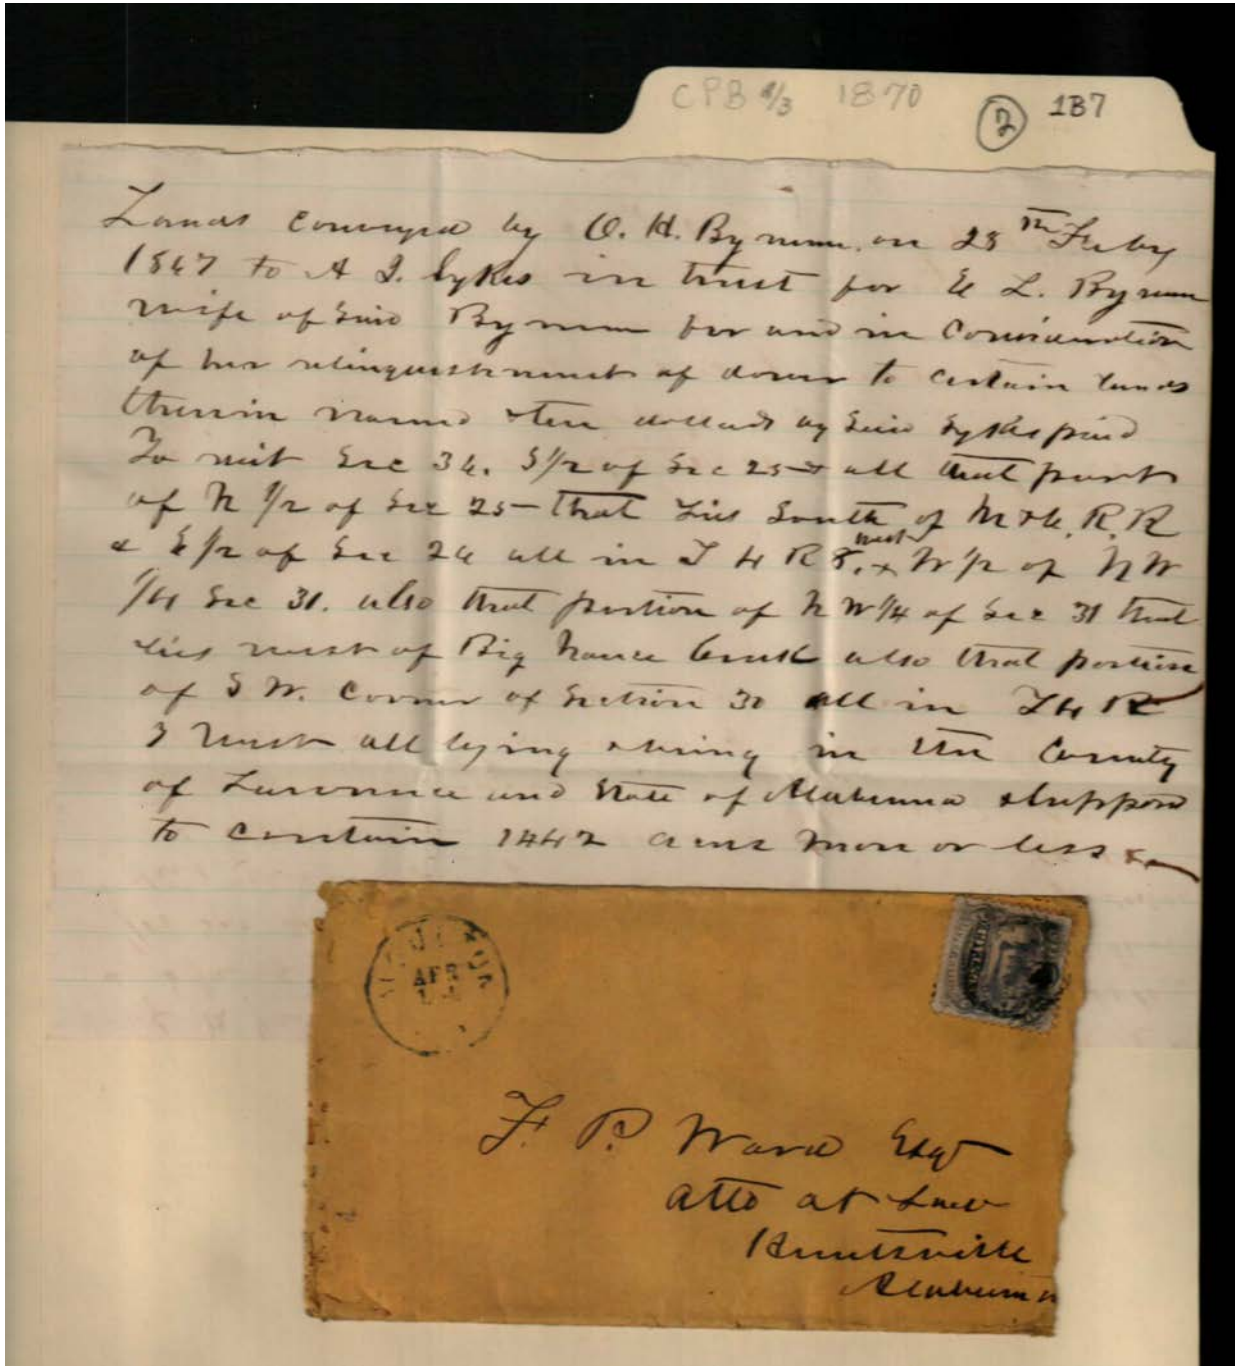 CPB 4/3 1870 (2) 1B7
Lands conveyed by O. H. Bynum, on 28th Feby
1867 to A J. Sykes in trust for E L. Bynum
wife of said Bynum for and in consideration
of her relinquishment of dower to certain lands
therein named & ten dollars by said Sykes paid
To wit Sec 36. S 1/2 of Sec 25 & all that part
of N 1/2 of Sec 25 - that lies South of M & C. R. R
& E 1/2 of Sec 26 all in T 4 R 8. west & W 1/2 of NW
1/4 Sec 31. also that portion of N W 1/4 of Sec 31 that
lies west of Big Nance Creek also that portion
of S W. Corner of Section 30 all in T 4 R
7 West all lying & being in the County
of Lawrence and State of Alabama & suppose
to contain 1442 acres more or less
APR
F. P. Ward Esq
Atto at Law
Huntsville
Alabama